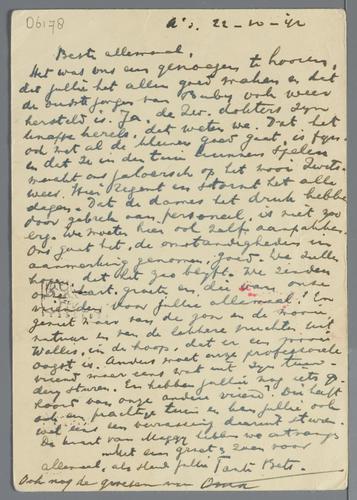 06178
A's. 22-10-42
Beste allemaal,
Het was ons een genoegen te hooren,
dat jullie het allen goed maken en dat
de van Ruby ook weer
hersteld is. Ja, de Zw. dokters zijn
knappe kerels, dat weten we. Dat het
ook met al de kleinen goed gaat, is fijn
en dat ze in den tuin kunnen spelen
maakt ons jaloersch op het mooi
weer. Hier regent en stormt het alle
dagen. Dat de dames het druk hebben
door gebrek aan personeel, is niet zoo
erg. We moeten hier ook zelf aanpakken.
Ons gaat het, de omstandigheden in
aanmerking genomen, goed. We zullen
hopen dat het zoo blijft. We zenden
onze hart. groeten en die van onze
vrienden voor jullie allemaal! En
geniet maar van de zon en de mooie
natuur en van de lekkere vruchten uit
Wallis, in de hoop, dat er een mooie
oogst is. Anders moet onze professoreele
vriend maar eens wat uit zijn tuin
sturen. En hebben jullie nog iets ge-
hoord van onze andere vriend? Die heeft
ook een prachtige tuin en kan jullie ook
wel eens een verrassing daaruit sturen.
De kaart van Meggy hebben we ontvangen
Met een groet & zoen voor
allemaal, als steeds jullie Tante Bets.
Ook nog de groeten van Oma